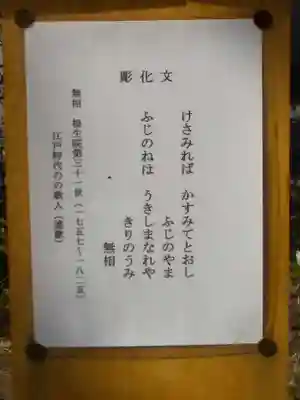 文化彫
けさみれば かすみてとおし
ふじのやま
ふじのねは うきしまなれや
きりのうみ
無相
無相 根生院第三十一世(一七五七~一八二五)
江戸時代のの歌人(連歌)